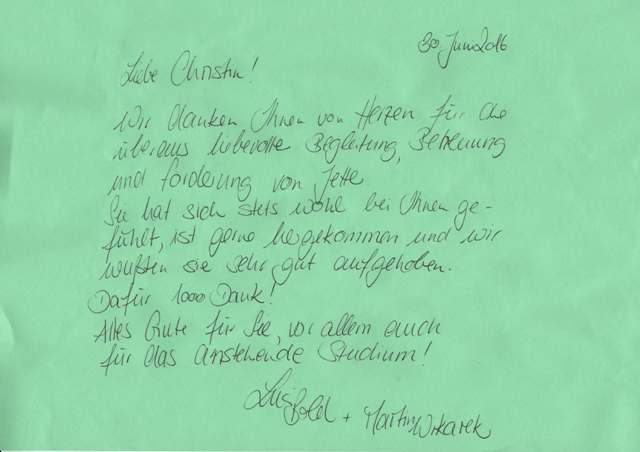 30. Juni 2016
Liebe Christin!
Wir danken Ihnen von Herzen für die
überaus liebevolle Begleitung, Betreuung
und Förderung von Jette.
Sie hat sich stets wohl bei Ihnen ge-
fühlt, ist gerne hergekommen und wir
wußten sie sehr gut aufgehoben.
Dafür 1000 Dank!
Alles Gute für Sie, vor allem auch
für das anstehende Studium!
+ Martin